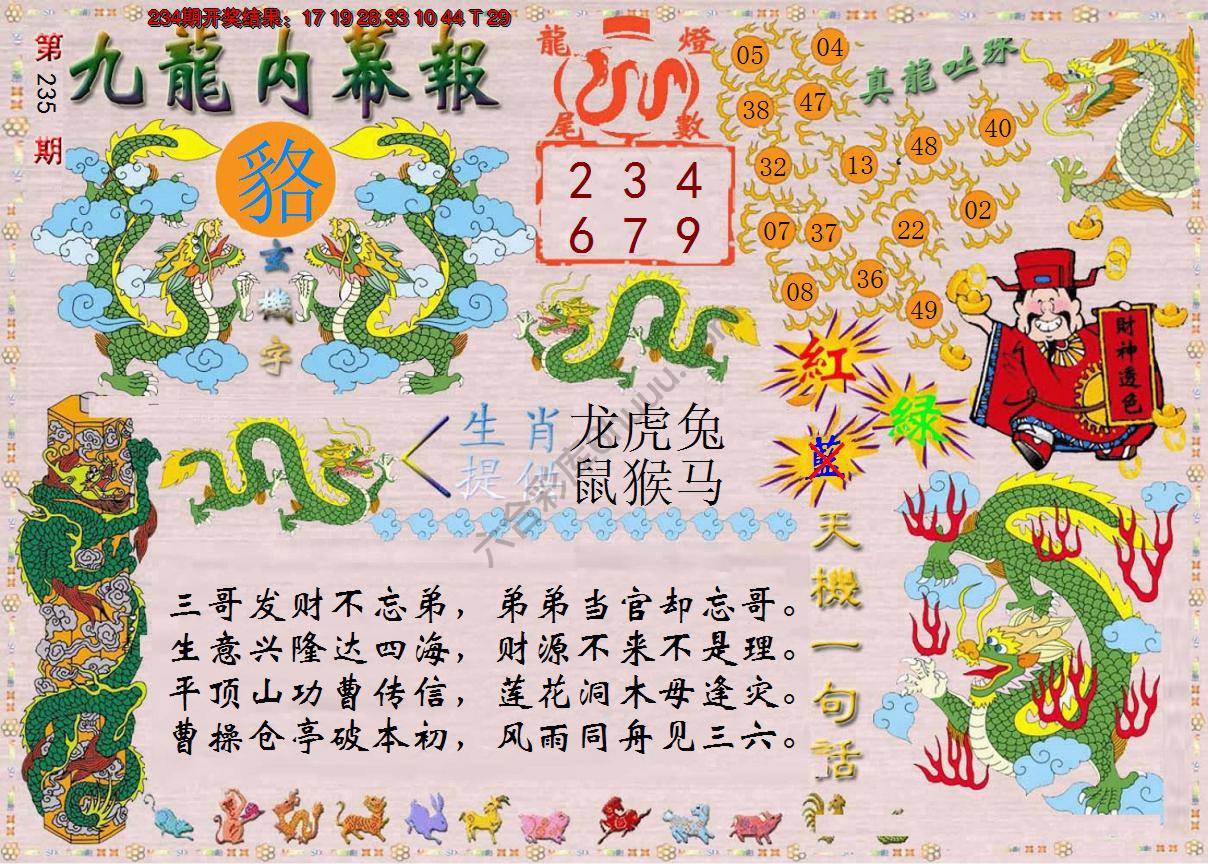 234期开奖结果：17 19 28 33 10 44 T 29
第235期
九龍内幕報
貉
玄機字
龍燈
尾數
2 3 4
6 7 9
真龍吐珠
05 04
38 47
32 13 48 40
07 37 22 02
08 36 49
財神透色
紅
綠
藍
生肖
提供
龙虎兔
鼠猴马
天機一句話
三哥发财不忘弟，弟弟当官却忘哥。
生意兴隆达四海，财源不来不是理。
平顶山功曹传信，莲花洞木母逢灾。
曹操仓亭破本初，风雨同舟见三六。